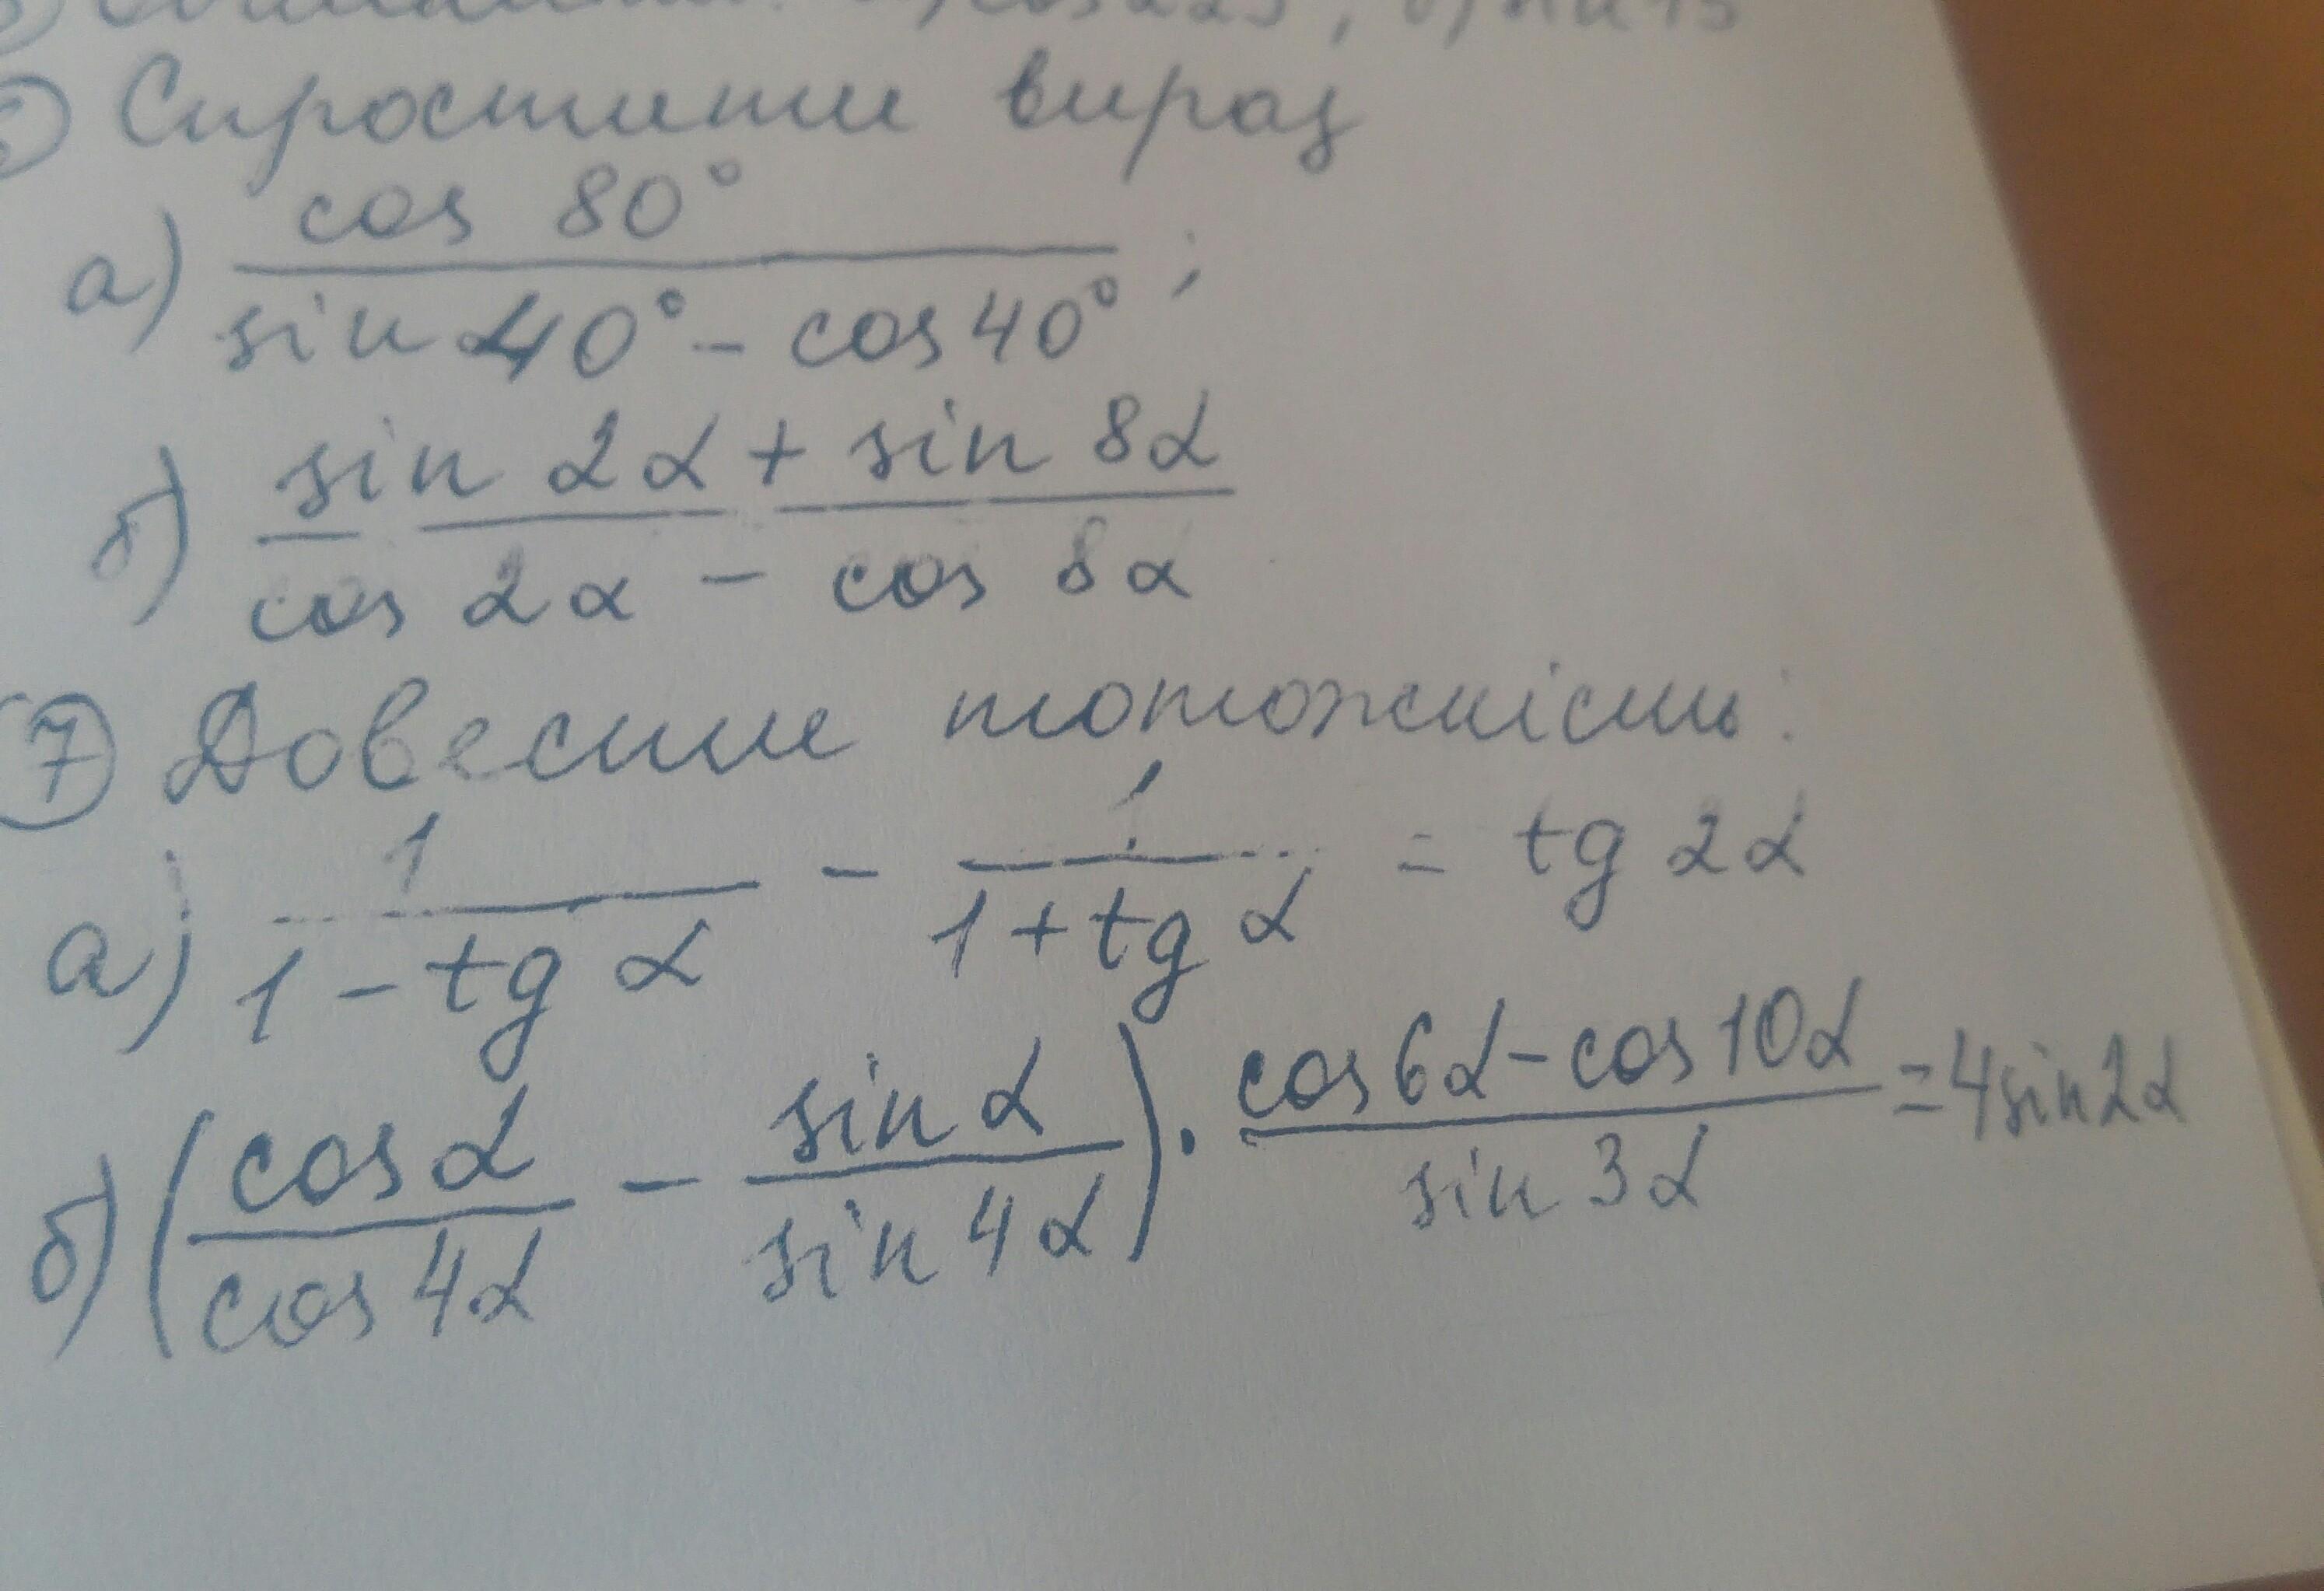 Спростити вираз
а) cos 80° / sin 40° - cos 40° ;
б) sin 2α + sin 8α / cos 2α - cos 8α
7 Довести тотожність:
а) 1 / 1 - tg α - 1 / 1 + tg α = tg 2α
б) (cos α / cos 4α - sin α / sin 4α) · cos 6α - cos 10α / sin 3α = 4 sin 2α